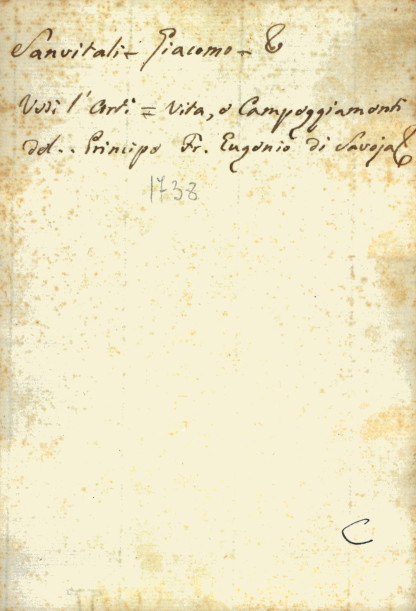 Sanvitali = Giacomo =
Vedi l' Arti = Vita, e Campeggiamenti
del.. Principe Fr. Eugenio di Savoja
1738
C